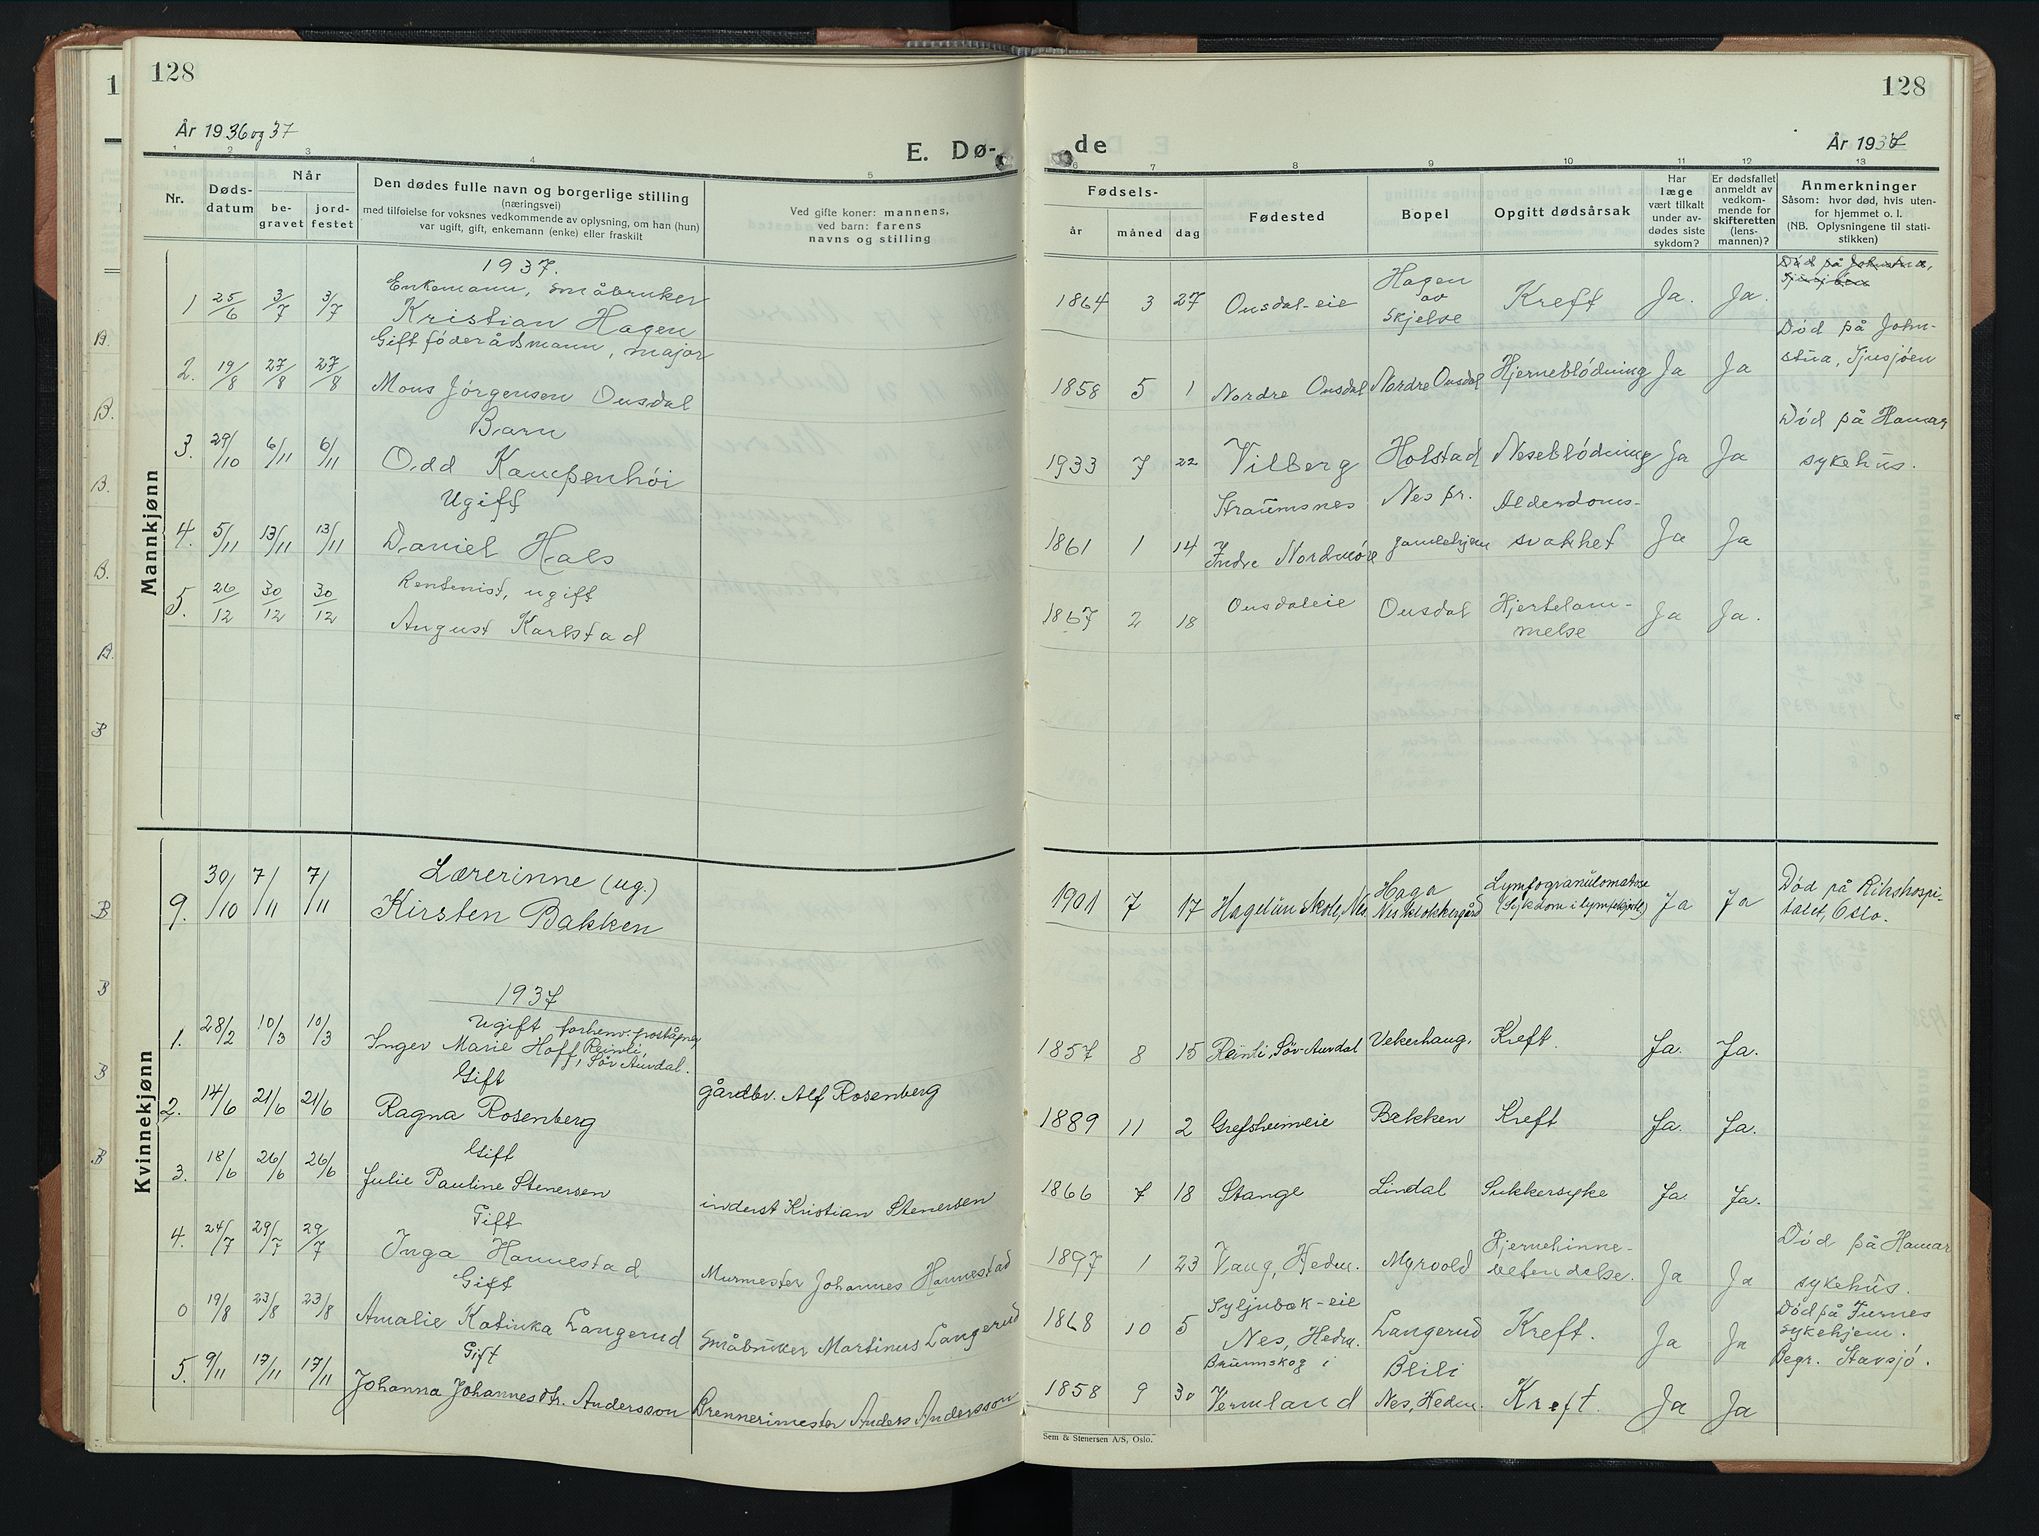 128
År 1936 og 37
E. Dø-
1 2 3 4 5
Nr.
Døds-
datum
Når
be-
gravet
jord-
festet
Den dødes fulle navn og borgerlige stilling
(næringsvei)
med tilføielse for voksnes vedkommende av oplysning, om han (hun)
var ugift, gift, enkemann (enke) eller fraskilt
Ved gifte koner: mannens,
ved barn: farens
navns og stilling
Mannkjønn
1937.
Enkemann, småbruker
1 25/6 3/7 3/7 Kristian Hagen
Gift föderådsmann, major
2. 19/8 27/8 27/8 Mons Jørgensen Ousdal
Barn
3. 29/10 6/11 6/11 Odd Kampenhöi
Ugift
4. 5/11 13/11 13/11 Daniel Hals
Rentenist, ugift
5. 26/12 30/12 30/12 August Karlstad
Kvinnekjønn
Lærerinne (ug.)
9. 30/10 7/11 7/11 Kirsten Bakken
1937
Ugift forhenv. poståpner
1. 28/2 10/3 10/3 Inger Marie Hoff, Reinli, Sör-Aurdal.
Gift
2. 14/6 21/6 21/6 Ragna Rosenberg gårdbr. Alf Rosenberg
Gift
3. 18/6 26/6 26/6 Julie Pauline Stenersen inderst Kristian Stenersen
Gift
4. 24/7 29/7 29/7 Inga Hannestad Murmester Johannes Hannestad
Gift
0 19/8 23/8 23/8 Amalie Katinka Langerud Småbruker Martinus Langerud
Gift
5. 9/11 17/11 17/11 Johanna Johannesdtr. Andersson Brennerimester Anders Andersson
128
de
År 1937
6 7 8 9 10 11 12 13
Fødsels-
år
måned
dag
Fødested
Bopel
Opgitt dødsårsak
Har
læge
vært tilkalt
under av-
dødes siste
sykdom?
Er dødsfallet
anmeldt av
vedkom-
mende for
skifteretten
(lens-
mannen)?
Anmerkninger
Såsom: hvor død, hvis uten-
for hjemmet o. l.
(NB. Oplysningene til stati-
stikken)
Död på Johnstua,
Sjusjöen
1864 3 27 Ousdal-eie Hagen av Skjelse Kreft Ja. Ja.
Död på John-
stua, Sjusjöen
1858 5 1 Nordre Ousdal Nordre Ousdal Hjerneblödning Ja Ja
Död på Hamar
sykehus.
1933 7 22 Vilberg Holstad Neseblödning Ja Ja
Straumsnes Nes pr. Alderdoms-
1861 1 14 Indre Nordmöre gamlehjem svakhet Ja Ja
1867 2 18 Ousdaleie Ousdal Hjertelam-
melse Ja Ja.
Lymfogranulomatose
1901 7 17 Hagelun skole, Nes Haga Nes klokkergård (Sykdom i lymfekjertl.) Ja Ja Död på Rikshospi-
talet, Oslo.
1857 8 15 Reinli, Sör-Aurdal Vekerhaug, Kreft. Ja. Ja.
1889 11 2 Grefsheimeie Bakken Kreft Ja. Ja.
1866 7 18 Stange Lindal Sukkersyke Ja. Ja.
1897 1 23 Vang, Hedm. Myrvold Hjernehinne-
betendelse. Ja Ja Död på Hamar
sykehus.
Syljubæk-eie
1868 10 5 Nes, Hedm. Langerud Kreft. Ja Ja Död på Furnes
sykehjem.
Begr. Stavsjö.
Brunnskog i Blili
1858 9 30 Vermland Nes, Hedm. Kreft. Ja Ja
Sem & Stenersen A/S, Oslo.